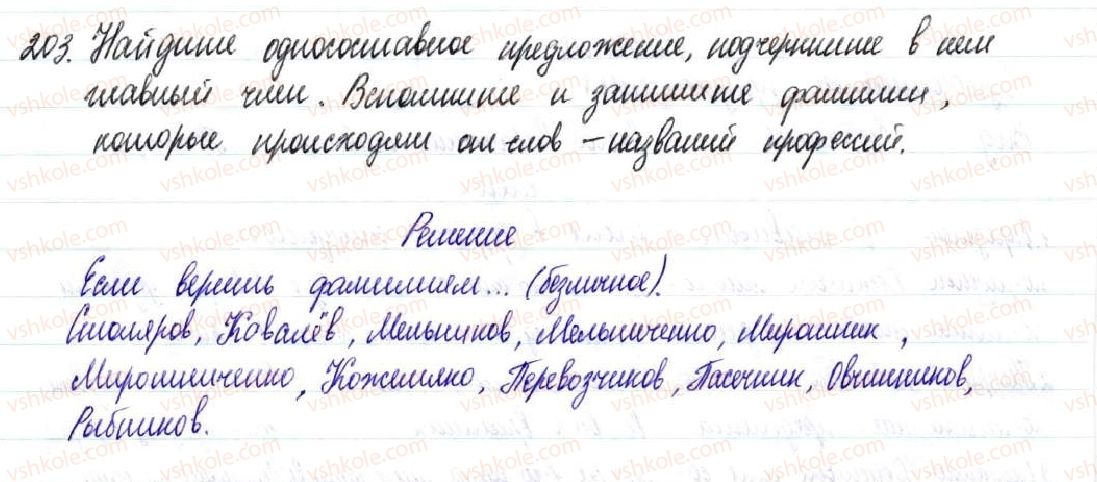 203. Найдите односоставное предложение, подчеркните в нем
главный член. Вспомните и запишите фамилии,
которые происходят от слов – названий профессий.
Решение
Если верить фамилиям... (безличное).
Столяров, Ковалёв, Мельников, Мельниченко, Мирошник,
Мирошниченко, Кожемяко, Перевозчиков, Пасечник, Овчинников,
Рыбников.